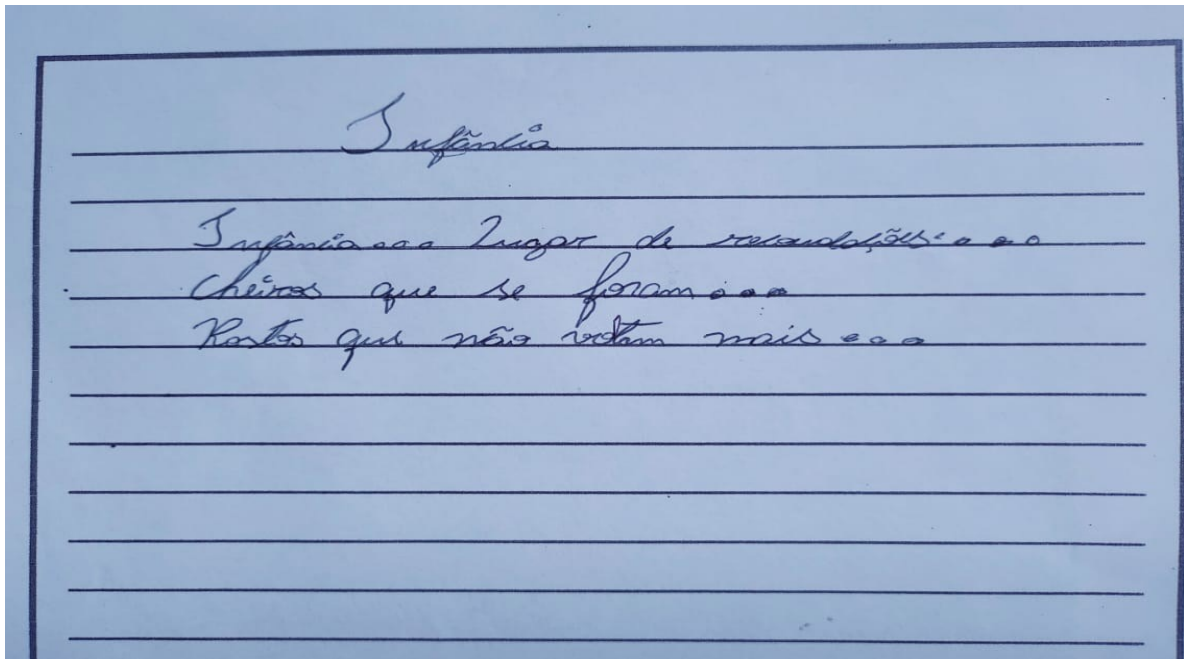 Infância
Infância... Lugar de recordações....
Cheiros que se foram...
Rostos que não voltam mais...